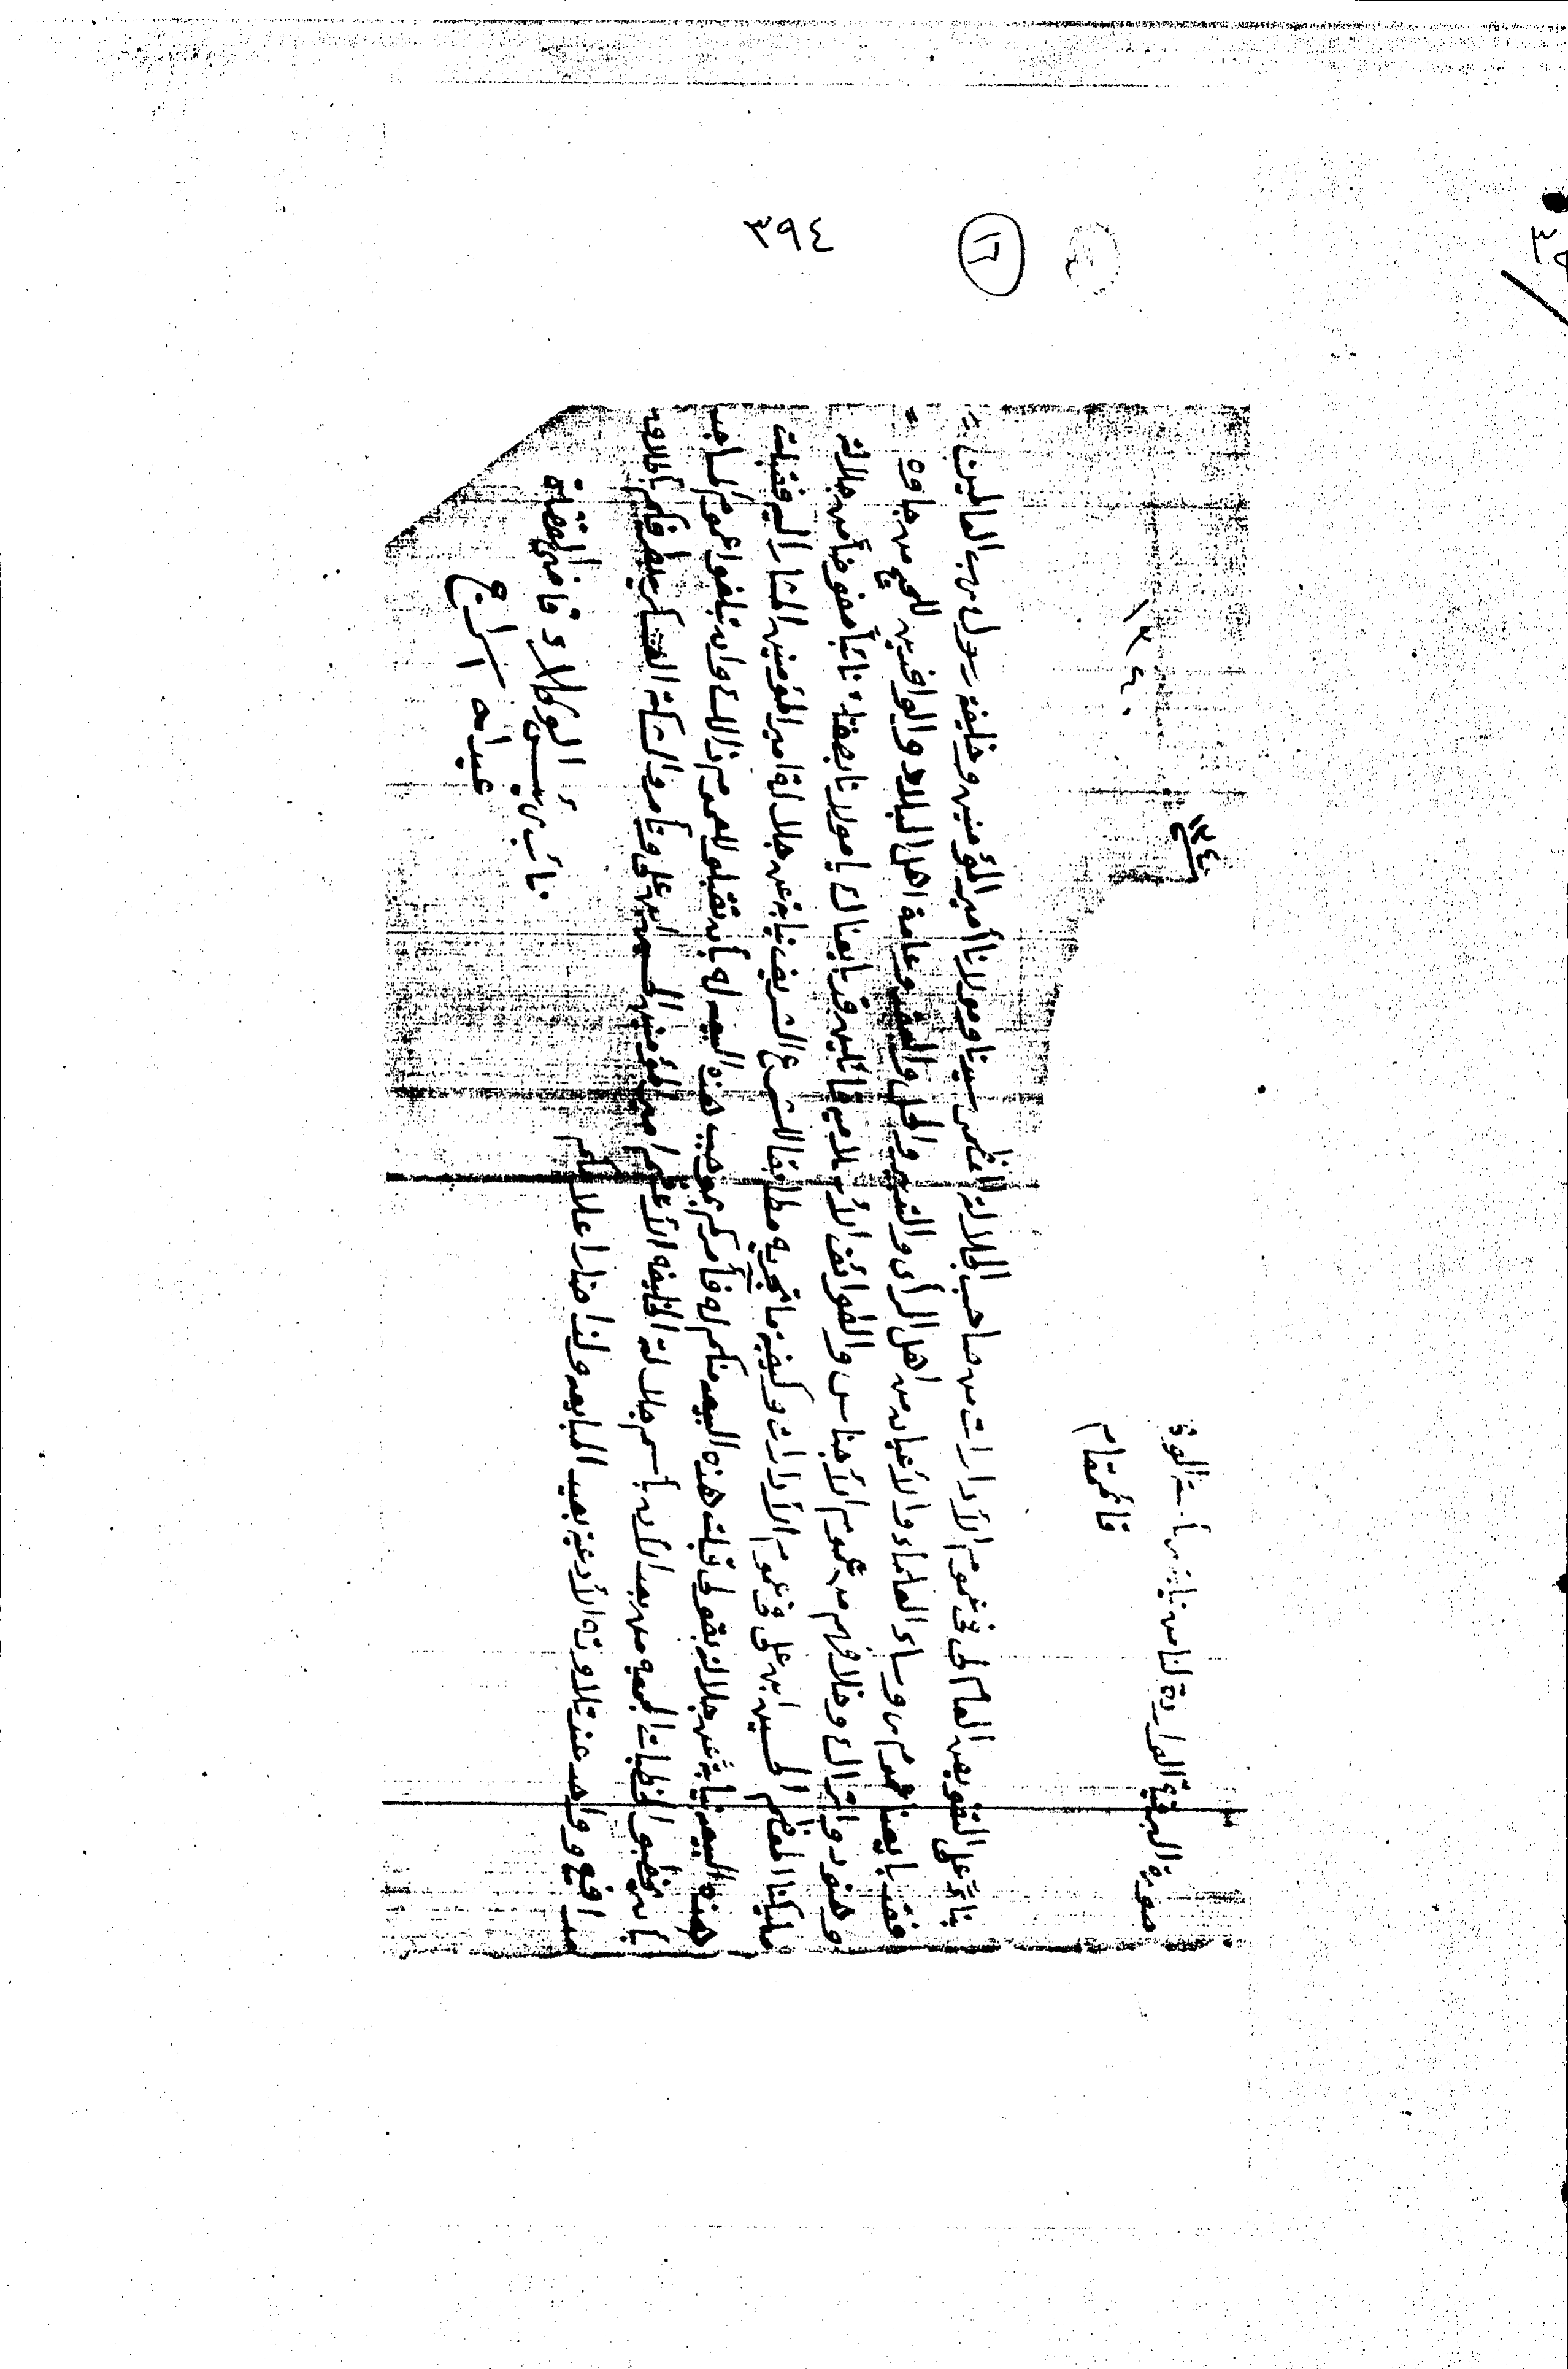 ٣٩٤
٦
١٣٤
صورة البرقية الواردة لنا من نيابة رئاسة الوزراء
قائمقام
١٣٤٠
بناءً على التفويض العالي في عموم الأدارات من صاحب الجلالة العظمى سيدنا ومولانا أمير المؤمنين وخليفة رسول رب العالمين
فقد بايعنا عموم رؤساء العلماء والأعيان من اهل الرأي والتدبير والحل والعقد وعامة اهل البلاد والوافدين للحج من جاوه
وهنود واتراك وخلافهم من عموم الأجناس والطوائف الأسلاميه قائلين قد بايعناك يا مولانا بصفتك نائباً مفوضاً من جلالة
مليكنا المعظم الحسين ابن علي في عموم الأدارات وكيفية ما تجريه مطابقا للشرع الشريف نيابة عن جلالة امير المؤمنين المشار اليه فقبلت
هذه البيعه نيابةً عن جلالته بقولي قبلت هذه البيعه منكم له فأمركم بموجب هذه البيعه له بأن تقبلو للعموم ذالك وان تبلغوا عموم المساجد
بأن يخطبو الخطبات الجمعه من بعد الآن بأسم جلالة الخليفة الأعظم امير المؤمنين الحسين ابن علي وتأمرو السكة العسكريه بطرفكم بأطلاق
مدافع وواحد عند تلاوته الأدعية بعيد المبايعه ولذا صار اعلامكم
نائب رئيس الوكلاء وقاضي القضاة
عبدالله سراج